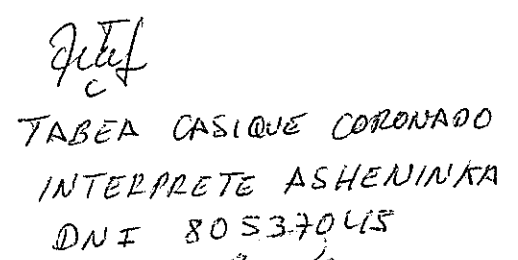 TABEA CASIQUE CORONADO
INTERPRETE ASHENINKA
DNI 80537045